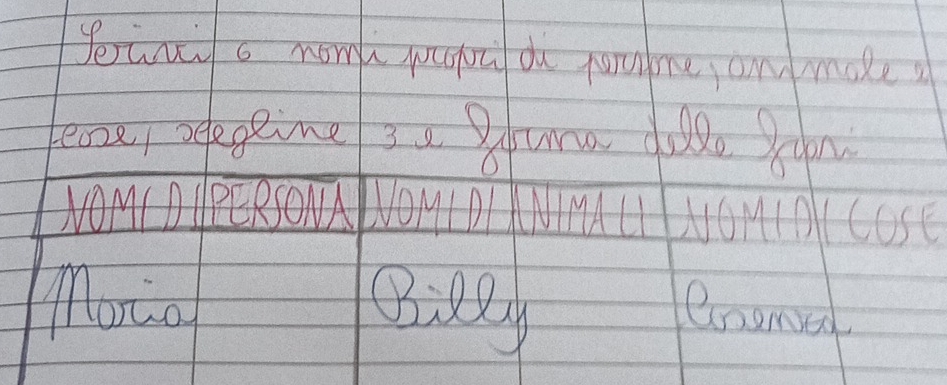 Scrivi 6 nomi propri di persone, animale e
cose, scegline 3 e forma delle frasi
NOMI DI PERSONA NOMI DI ANIMALI NOMI DI COSE
Maria Billy